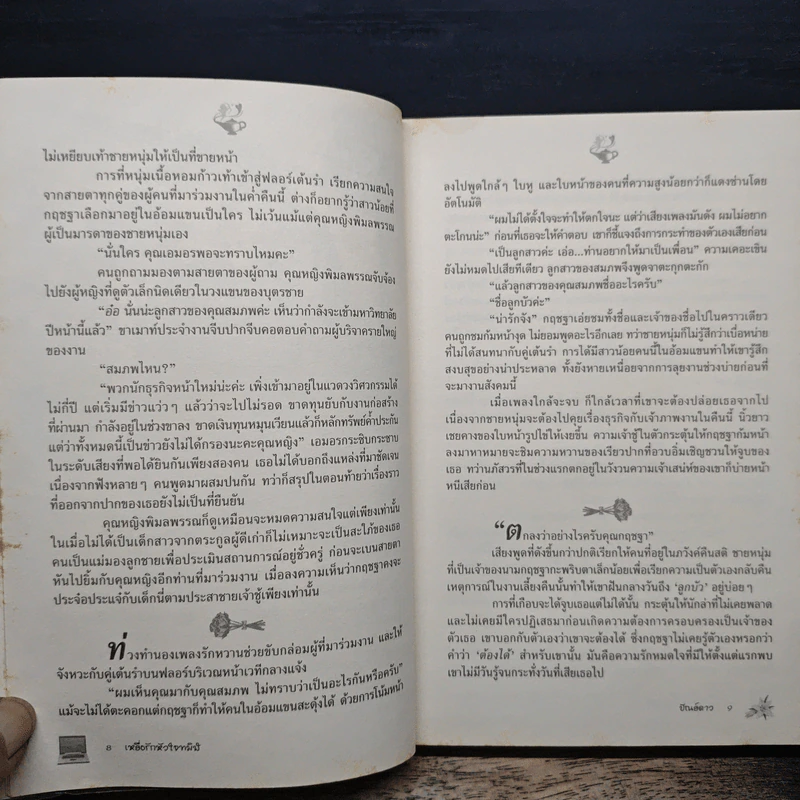 ไม่เหยียบเท้าชายหนุ่มให้เป็นที่ขายหน้า
การที่หนุ่มเนื้อหอมก้าวเท้าเข้าสู่ฟลอร์เต้นรำ เรียกความสนใจ
จากสายตาทุกคู่ของผู้คนที่มาร่วมงานในค่ำคืนนี้ ต่างก็อยากรู้ว่าสาวน้อยที่
กฤชฐาเลือกมาอยู่ในอ้อมแขนเป็นใคร ไม่เว้นแม้แต่คุณหญิงพิมลพรรณ
ผู้เป็นมารดาของชายหนุ่มเอง
“นั่นใคร คุณเอมอรพอจะทราบไหมคะ”
คนถูกถามมองตามสายตาของผู้ถาม คุณหญิงพิมลพรรณจับจ้อง
ไปยังผู้หญิงที่ดูตัวเล็กนิดเดียวในวงแขนของบุตรชาย
“อ๋อ นั่นน่ะลูกสาวของคุณสมภพค่ะ เห็นว่ากำลังจะเข้ามหาวิทยาลัย
ปีหน้านี้แล้ว” ขาเมาท์ประจำงานจีบปากจีบคอตอบคำถามผู้บริจาครายใหญ่
ของงาน
“สมภพไหน?”
“พวกนักธุรกิจหน้าใหม่น่ะค่ะ เพิ่งเข้ามาอยู่ในแวดวงวิศวกรรมได้
ไม่กี่ปี แต่เริ่มมีข่าวแว่วๆ แล้วว่าจะไปไม่รอด ขาดทุนยับกับงานก่อสร้าง
ที่ผ่านมา กำลังอยู่ในช่วงขาลง ขาดเงินทุนหมุนเวียนแล้วก็หลักทรัพย์ค้ำประกัน
แต่ว่าทั้งหมดนี้เป็นข่าวยังไม่ได้กรองนะคะคุณหญิง” เอมอรกระซิบกระซาบ
ในระดับเสียงที่พอได้ยินกันเพียงสองคน เธอไม่ได้บอกถึงแหล่งที่มาชัดเจน
เนื่องจากฟังหลายๆ คนพูดมาผสมปนกัน ทว่าก็สรุปในตอนท้ายว่าเรื่องราว
ที่ออกจากปากของเธอยังไม่เป็นที่ยืนยัน
คุณหญิงพิมลพรรณก็ดูเหมือนจะหมดความสนใจแต่เพียงเท่านั้น
ในเมื่อไม่ได้เป็นเด็กสาวจากตระกูลผู้ดีเก่าก็ไม่เหมาะจะเป็นสะใภ้ของเธอ
คนเป็นแม่มองลูกชายเพื่อประเมินสถานการณ์อยู่ชั่วครู่ ก่อนจะเบนสายตา
หันไปยิ้มกับคุณหญิงอีกท่านที่มาร่วมงาน เมื่อลงความเห็นว่ากฤชฐาคงจะ
ประจ๋อประแจ๋กับเด็กนี่ตามประสาชายเจ้าชู้เพียงเท่านั้น
ท่วงทำนองเพลงรักหวานช่วยขับกล่อมผู้ที่มาร่วมงาน และให้
จังหวะกับคู่เต้นรำบนฟลอร์บริเวณหน้าเวทีกลางแจ้ง
“ผมเห็นคุณมากับคุณสมภพ ไม่ทราบว่าเป็นอะไรกันหรือครับ”
แม้จะไม่ได้ตะคอกแต่กฤชฐาก็ทำให้คนในอ้อมแขนสะดุ้งได้ ด้วยการโน้มหน้า
8 เหยื่อรักหัวใจทมิฬ
ลงไปพูดใกล้ๆ ใบหู และใบหน้าของคนที่ความสูงน้อยกว่าก็แดงซ่านโดย
อัตโนมัติ
“ผมไม่ได้ตั้งใจจะทำให้ตกใจนะ แต่ว่าเสียงเพลงมันดัง ผมไม่อยาก
ตะโกนน่ะ” ก่อนที่เธอจะให้คำตอบ เขาก็ชี้แจงถึงการกระทำของตัวเองเสียก่อน
“เป็นลูกสาวค่ะ เอ่อ...ท่านอยากให้มาเป็นเพื่อน” ความเคอะเขิน
ยังไม่หมดไปเสียทีเดียว ลูกสาวของสมภพจึงพูดจาตะกุกตะกัก
“แล้วลูกสาวของคุณสมภพชื่ออะไรครับ”
“ชื่อลูกบัวค่ะ”
“น่ารักจัง” กฤชฐาเอ่ยชมทั้งชื่อและเจ้าของชื่อไปในคราวเดียว
คนถูกชมก้มหน้างุด ไม่ยอมพูดอะไรอีกเลย ทว่าชายหนุ่มก็ไม่รู้สึกว่าเบื่อหน่าย
ที่ไม่ได้สนทนากับคู่เต้นรำ การได้มีสาวน้อยคนนี้ในอ้อมแขนทำให้เขารู้สึก
สงบสุขอย่างน่าประหลาด ทั้งยังหายเหนื่อยจากการลุยงานช่วงบ่ายก่อนที่
จะมางานสังคมนี้
เมื่อเพลงใกล้จะจบ ก็ใกล้เวลาที่เขาจะต้องปล่อยเธอจากไป
เนื่องจากชายหนุ่มจะต้องไปคุยเรื่องธุรกิจกับเจ้าภาพงานในคืนนี้ นิ้วยาว
เชยคางของใบหน้ารูปไข่ให้เงยขึ้น ความเจ้าชู้ในตัวกระตุ้นให้กฤชฐาก้มหน้า
ลงมาหาหมายจะชิมความหวานของเรียวปากที่อวบอิ่มเชิญชวนให้จูบของ
เธอ ทว่านภัสวรที่ในช่วงแรกตกอยู่ในวังวนความเจ้าเสน่ห์ของเขาก็บ่ายหน้า
หนีเสียก่อน
“ตกลงว่าอย่างไรครับคุณกฤชฐา”
เสียงพูดที่ดังขึ้นกว่าปกติเรียกให้คนที่อยู่ในภวังค์คืนสติ ชายหนุ่ม
ที่เป็นเจ้าของนามกฤชฐากะพริบตาเล็กน้อยเพื่อเรียกความเป็นตัวเองกลับคืน
เหตุการณ์ในงานเลี้ยงคืนนั้นทำให้เขาฝันกลางวันถึง ‘ลูกบัว’ อยู่บ่อยๆ
การที่เกือบจะได้จูบเธอแต่ไม่ได้นั้น กระตุ้นให้นักล่าที่ไม่เคยพลาด
และไม่เคยมีใครปฏิเสธมาก่อนเกิดความต้องการครอบครองเป็นเจ้าของ
ตัวเธอ เขาบอกกับตัวเองว่าเขาจะต้องได้ ซึ่งกฤชฐาไม่เคยรู้ตัวเองหรอกว่า
คำว่า ‘ต้องได้’ สำหรับเขานั้น มันคือความรักหมดใจที่มีให้ตั้งแต่แรกพบ
เขาไม่มีวันรู้จนกระทั่งวันที่เสียเธอไป
ปัณณ์ดาว 9